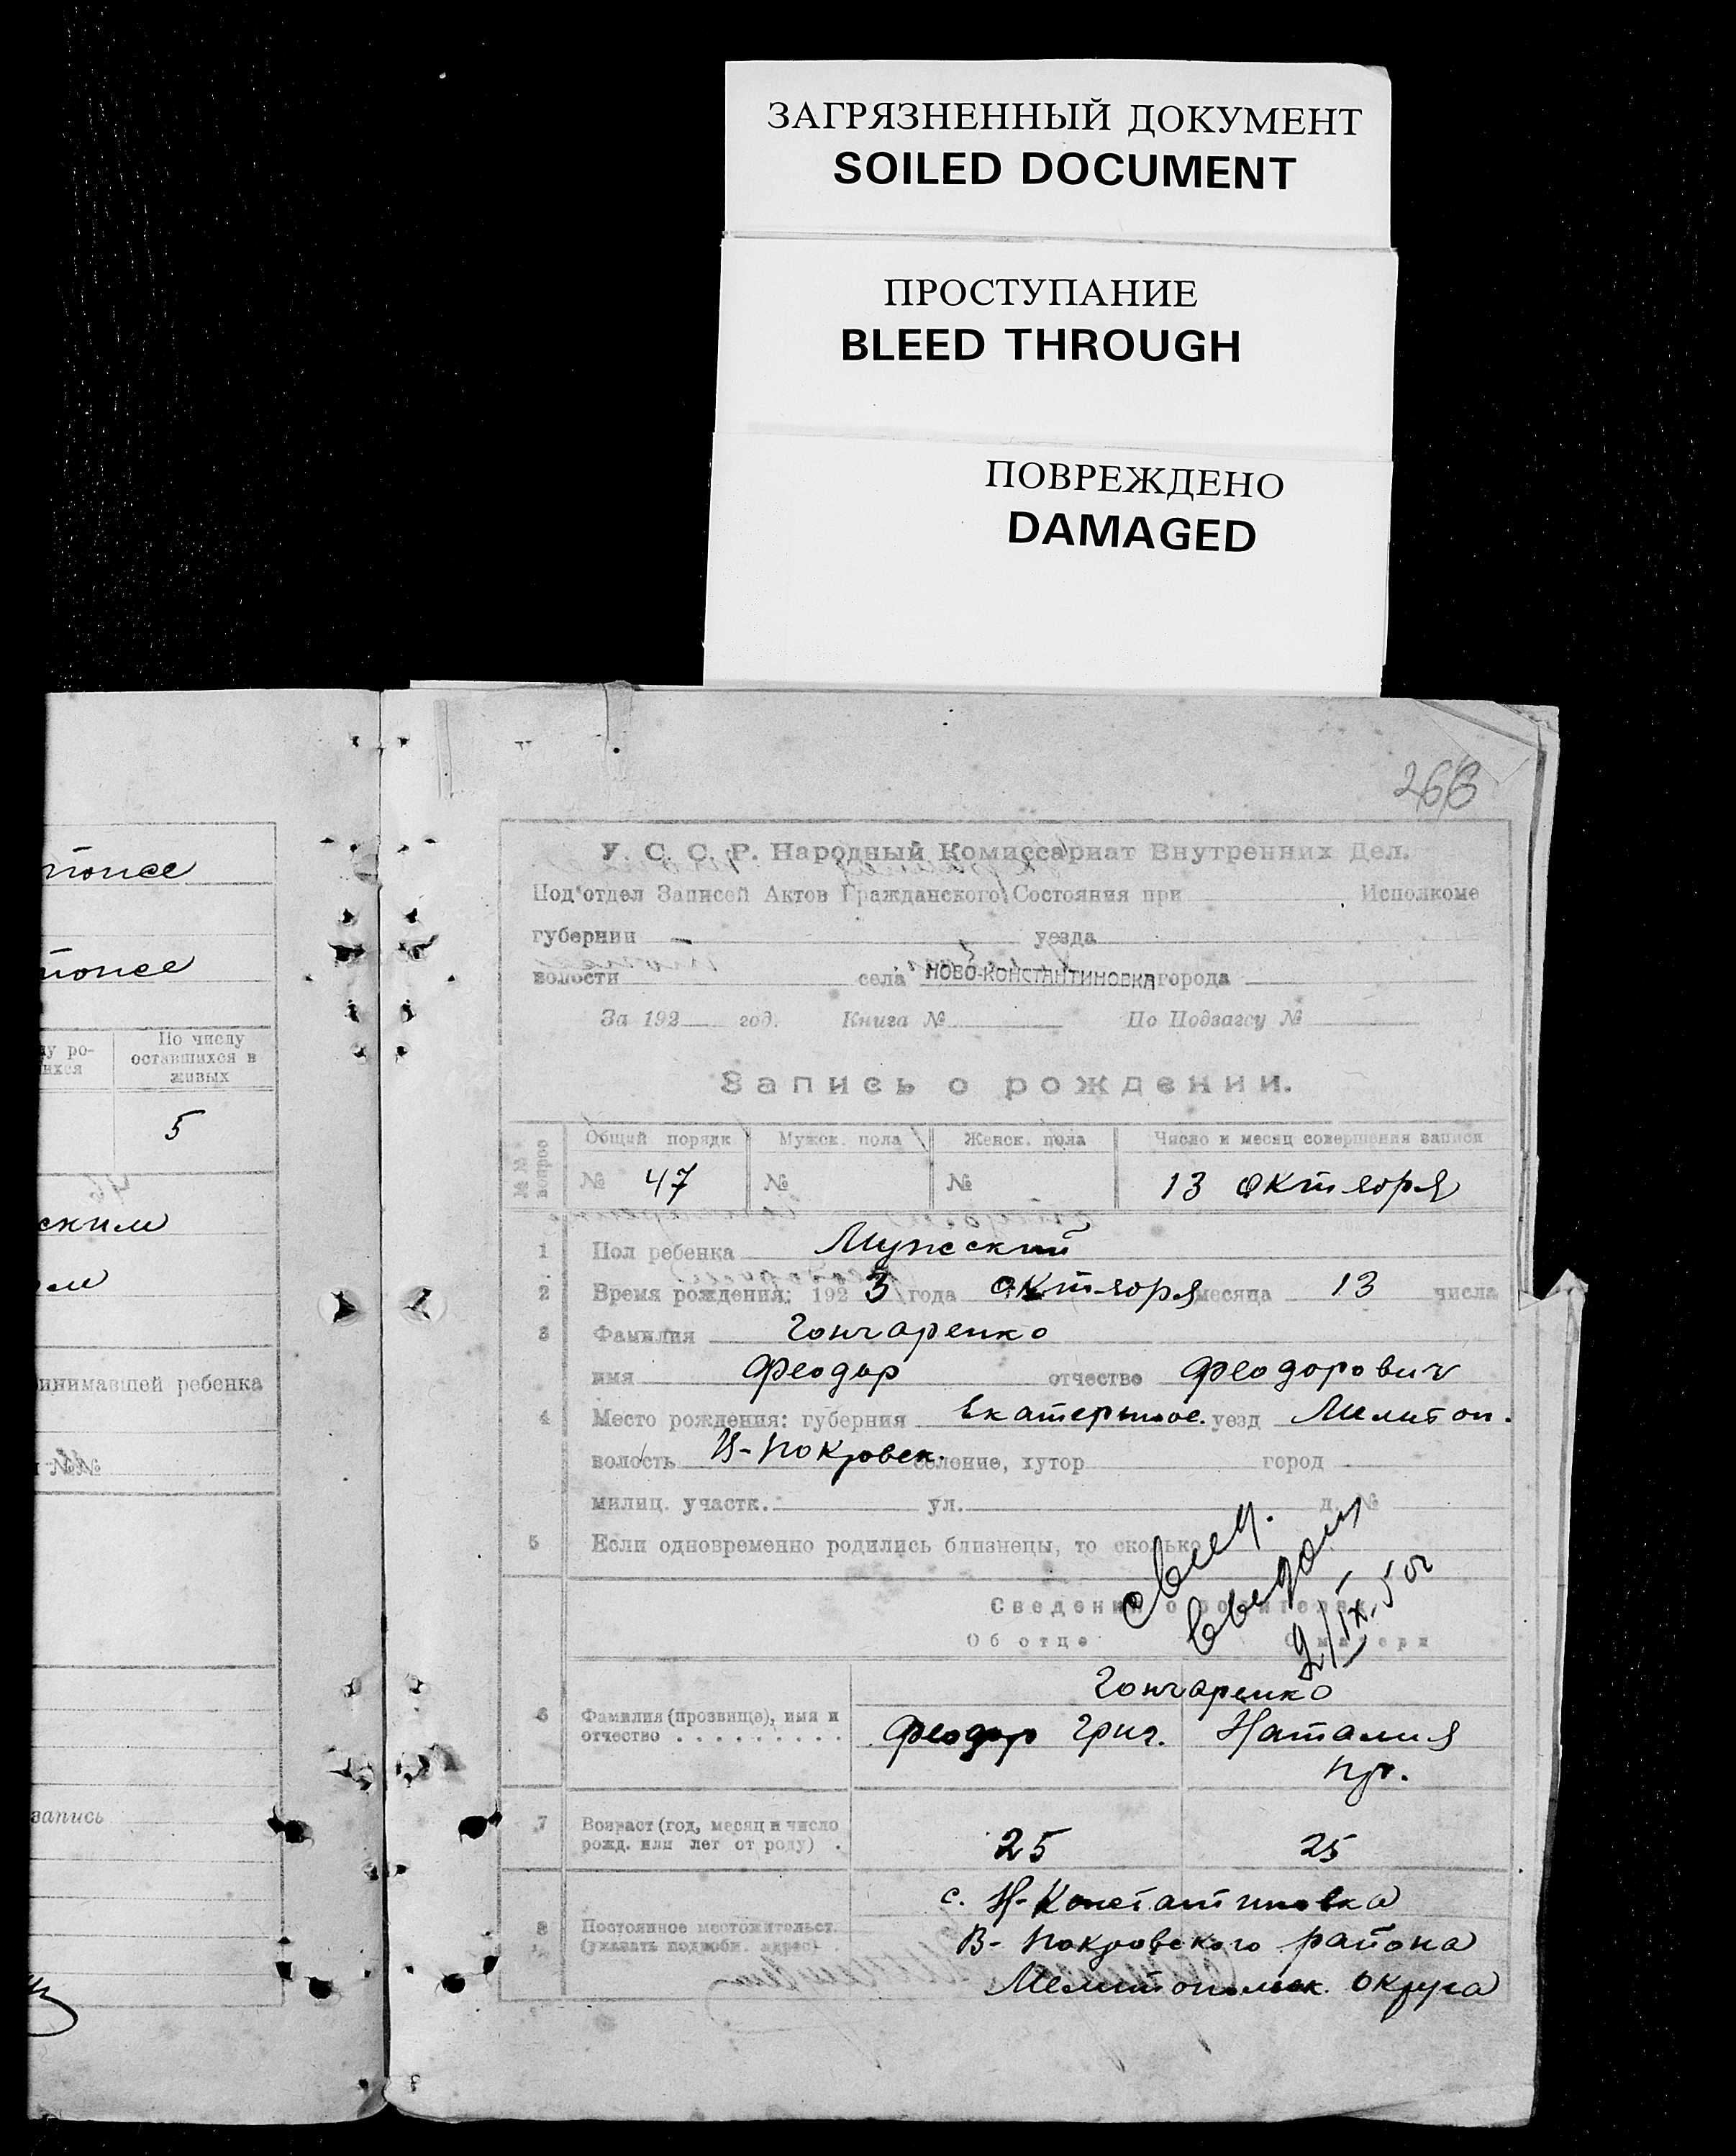 ЗАГРЯЗНЕННЫЙ ДОКУМЕНТ
SOILED DOCUMENT
ПРОСТУПАНИЕ
BLEED THROUGH
ПОВРЕЖДЕНО
DAMAGED
По числу
оставшихся в
живых
5
инимавшей ребенка
запись
У. С. С. Р. Народный Комиссариат Внутренних Дел.
Под'отдел Записей Актов Гражданского Состояния при Исполкоме
губернии — уезда
волости села НОВО-КОНСТАНТИНОВКА города
За 192 год. Книга № По Подзагсу №
Запись о рождении.
№№ вопрос Общий порядк Мужск. пола Женск. пола Число и месяц совершения записи
№ 47 № № 13 октября
1 Пол ребенка Мужский
2 Время рождения: 192 3 года октября месяца 13 числа
3 Фамилия Гончаренко
имя Феодор отчество Феодорович
4 Место рождения: губерния Екатеринос. уезд Мелитоп.
волость В-Покровск. селение, хутор город
милиц. участк. ул. д. №
5 Если одновременно родились близнецы, то сколько
Сведения о родителях
Об отце О матери
2/IX-50г
Гончаренко
6 Фамилия (прозвище), имя и
отчество . . . . . . . . . Феодор Григ. Наталия
7 Возраст (год, месяц и число
рожд. или лет от роду) . 25 25
с. Н-Константиновка
8 Постоянное местожительст.
(указать подробн. адрес) . В-Покровского района
Мелитопольск. округа